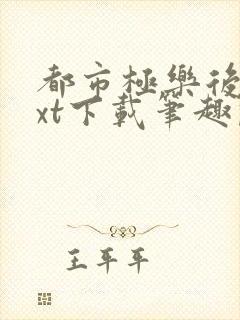 都市極樂後
xt下載筆趣
王平平